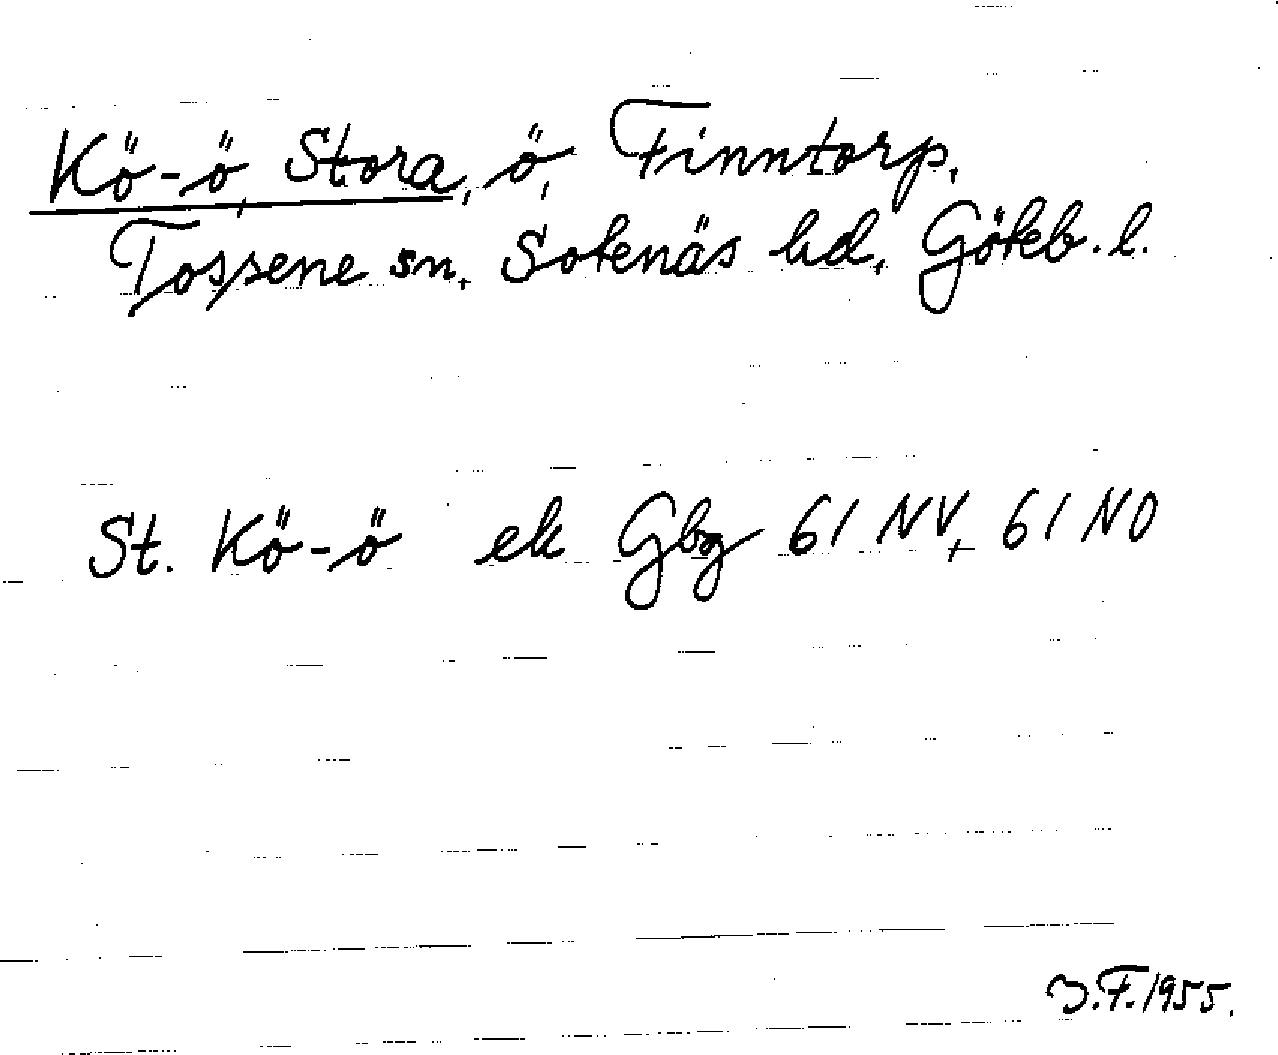 Kö-ö, Stora, ö, Finntorp,
Tossene sn, Sotenäs hd, Göteb. l.
St. Kö-ö ek Gbg 61 NV, 61 NO
J.F. 1955.